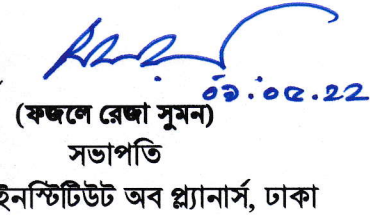 ০১.০৫.২২
(ফজলে রেজা সুমন)
সভাপতি
ইনস্টিটিউট অব প্ল্যানার্স, ঢাকা